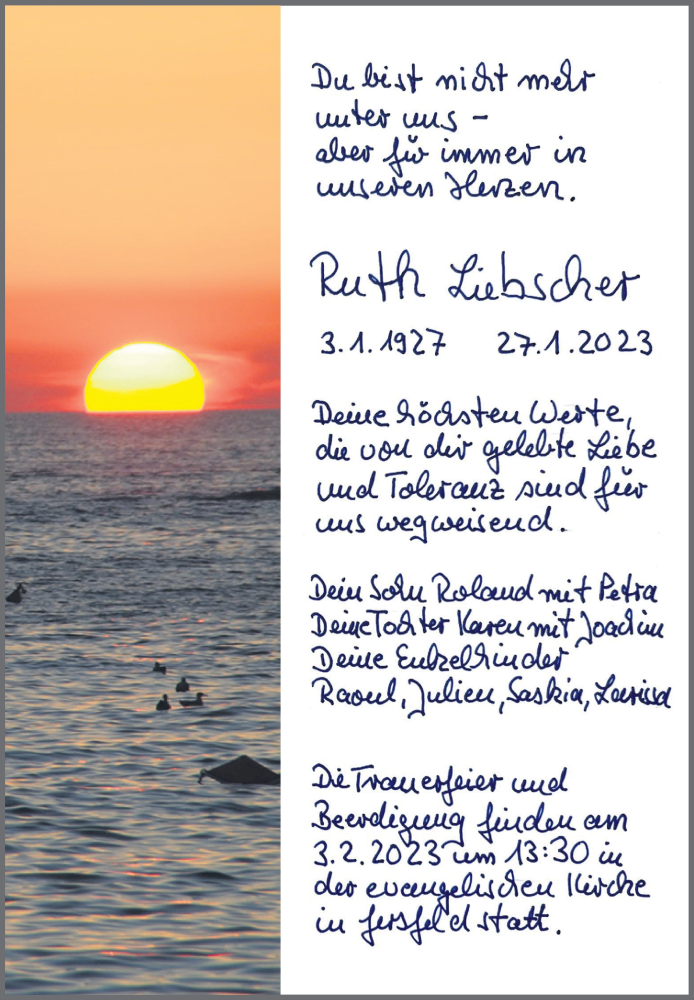 Du bist nicht mehr
unter uns -
aber für immer in
unseren Herzen.
Ruth Liebscher
3.1.1927 27.1.2023
Deine höchsten Werte,
die von dir gelebte Liebe
und Toleranz sind für
uns wegweisend.
Dein Sohn Roland mit Petra
Deine Tochter Karen mit Joachim
Deine Enkelkinder
Raoul, Julien, Saskia, Larissa
Die Trauerfeier und
Beerdigung finden am
3.2.2023 um 13:30 in
der evangelischen Kirche
in statt.